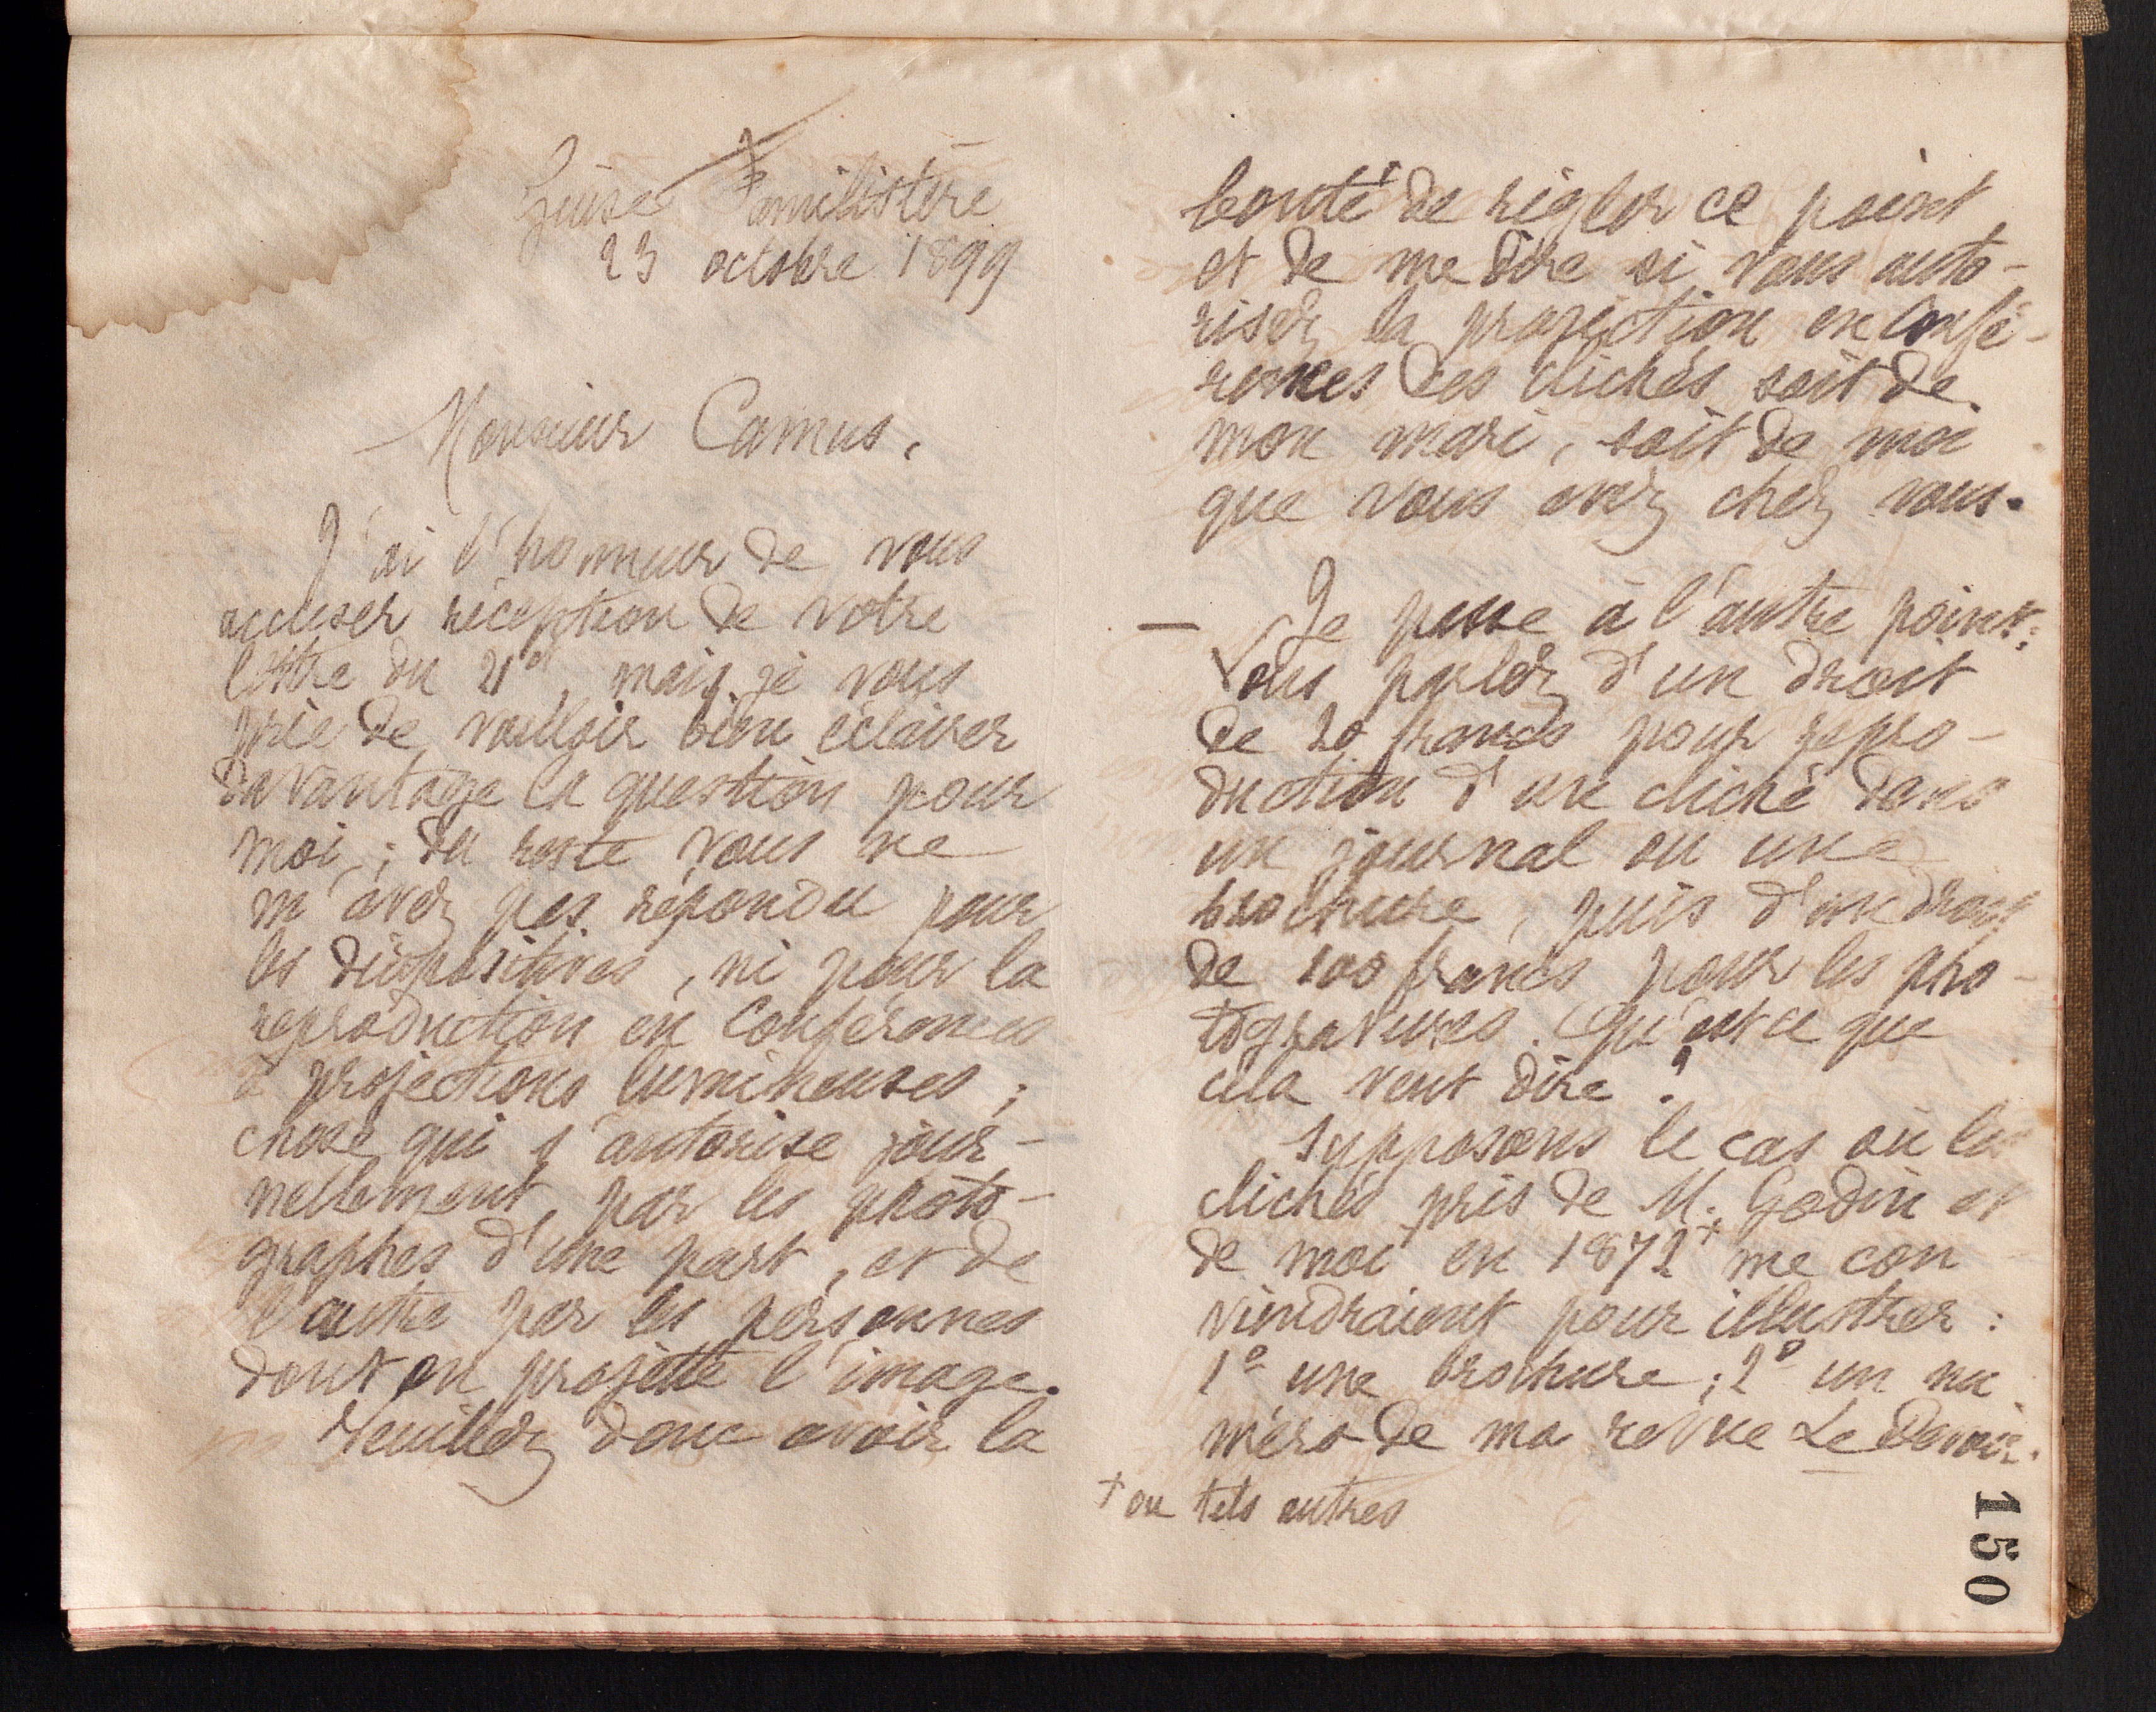 Guise Familistère
23 octobre 1899
Monsieur Camus,
J'ai l'honneur de vous
accuser réception de votre
lettre du 21 et, mais je vous
prie de vouloir bien éclairer
davantage la question pour
moi ; du reste vous ne
m'avez pas répondu pour
les diapositives, ni pour la
reproduction en Conférences
à projections lumineuses ;
chose qui s'autorise jour-
nellement par les photo-
graphes d'une part, et de
l'autre par les personnes
dont on projette l'image.
Veuillez donc avoir la
bonté de régler ce point
et de me dire si vous auto-
risez la projection en Confé-
rences des clichés soit de
mon mari, soit de moi
que vous avez chez vous.
— Je passe à l'autre point :
Vous parlez d'un droit
de 20 francs pour repro-
duction d'un cliché dans
un journal ou une
brochure, puis d'un droit
de 100 francs pour les pho-
togravures. Qu'est ce que
cela veut dire ?
Supposons le cas où les
clichés pris de M. Godin et
de moi en 1872 + me con
viendraient pour illustrer :
1° une brochure ; 2° un nu
méro de ma revue Le Devoir.
+ ou tels autres
150